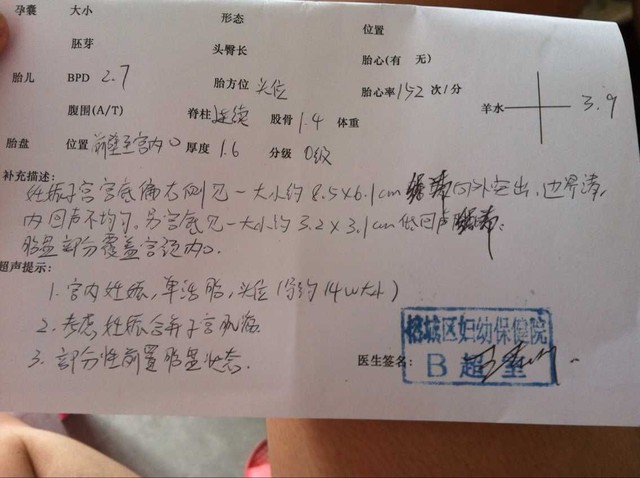 孕囊 大小 形态 位置
胚芽 头臀长 胎心(有 无)
胎儿 BPD 2.7 胎方位 头位 胎心率 152 次/分 羊水 3.9
腹围(A/T) 脊柱 连续 股骨 1.4 体重
胎盘 位置 前壁至宫内口 厚度 1.6 分级 0级
补充描述:
妊娠子宫宫底偏右侧见一大小约8.5x6.1cm 向外突出,边界清,
内回声不均匀。另宫底见一大小约3.2x3.1cm低回声
胎盘部分覆盖宫颈内口.
超声提示:
1.宫内妊娠,单活胎,头位(约14w大小)
2.考虑妊娠合并子宫肌瘤
3.部分性前置胎盘状态.
医生签名:
城区妇幼保健院
B超室